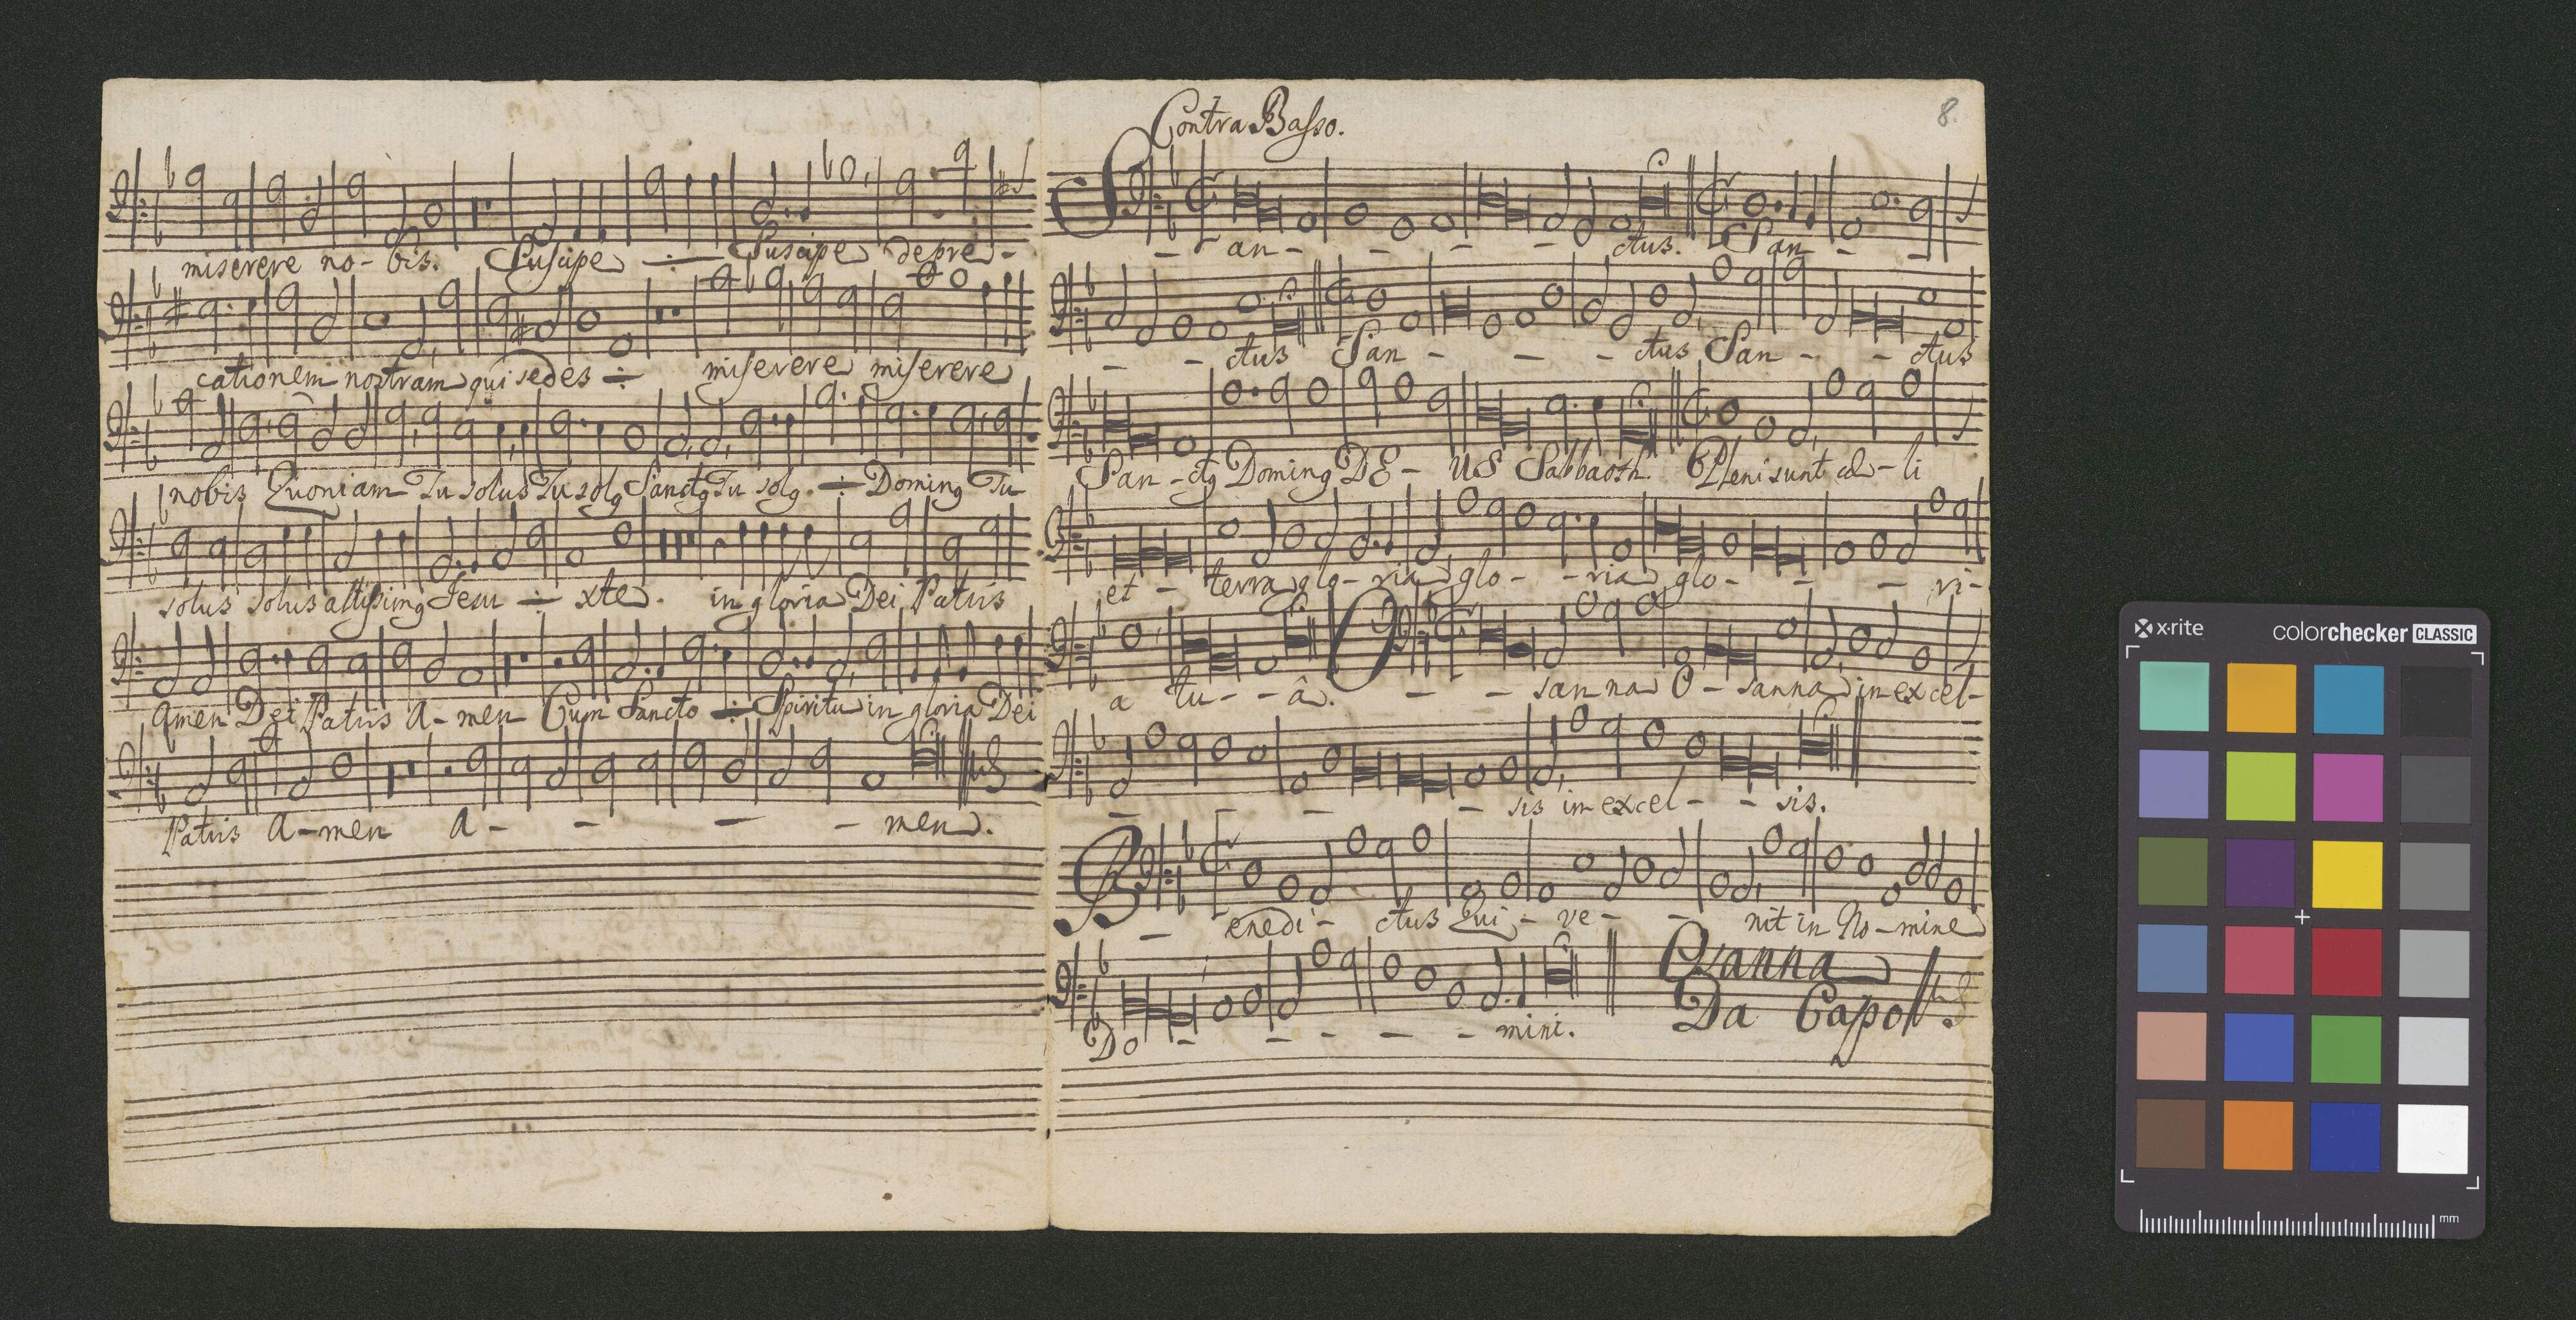 miserere no - bis. Suscipe ÷ Suscipe depre -
cationem nostram qui sedes ÷ miserere miserere
nobis Quoniam Tu solus Tu solg Sanctg Tu solg. ÷ Doming Tu
solus solus altissimg Jesu ÷ xte. in gloria Dei Patris
amen Dei Patris A - men Cum Sancto ÷ Spiritu in gloria Dei
Patris A - men A - - - - men.
8.
Contra Basso.
S - an - - - - ctus. San - -
- - ctus San - - - ctus San - - ctus
San - ctg Doming DE - US Sabbaoth. Pleni sunt cœ - li
et - terra glo - ria glo - - ria glo - - - ri -
a tu - - â. O - - sanna O - sanna in excel -
- - - - sis in excel - - sis.
B - enedi - ctus Qui - ve - - nit in No - mine
Do - - - - - mini.
Osanna
Da Capo
x·rite
colorchecker CLASSIC
mm